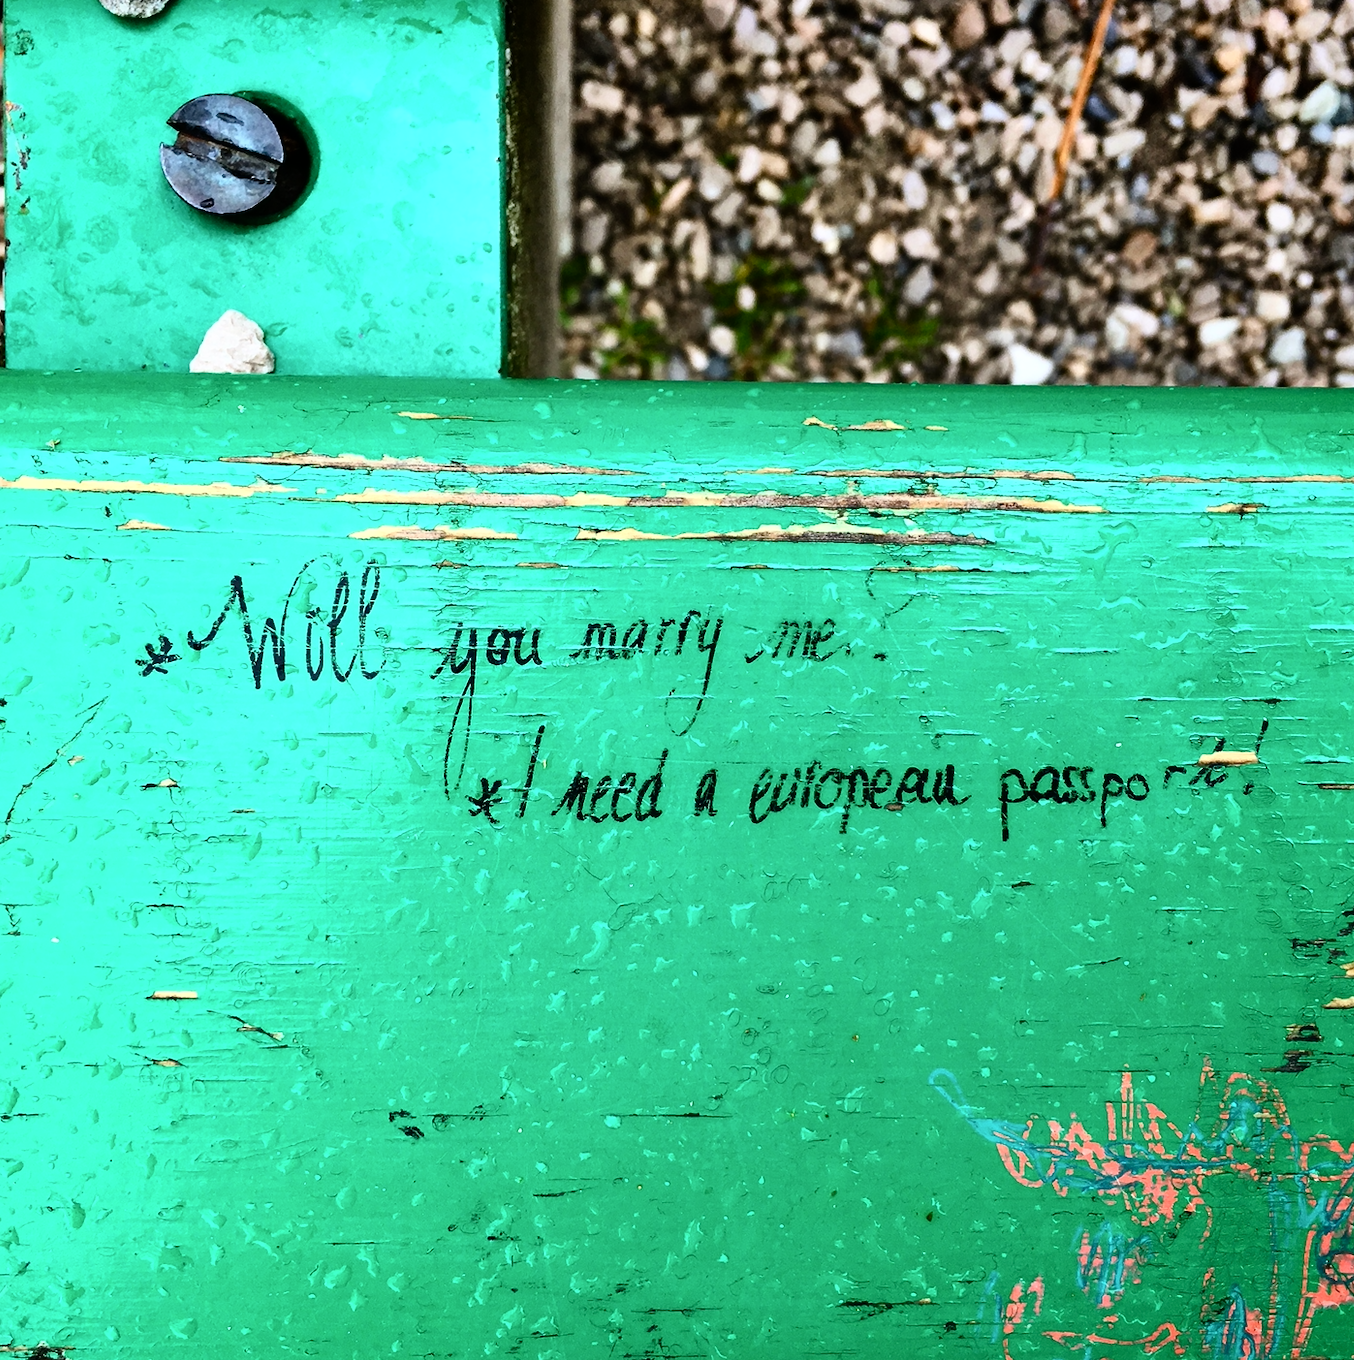 *Will you marry me..?
*I need a european passport!